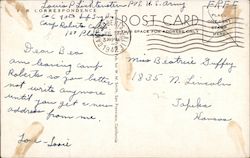 Louis P. Lichtenstein Pvt U.S. Army
Free
POST CARD
FOR CORRESPONDENCE
SPACE FOR ADDRESS ONLY
1942
Camp Roberts Calif
Dear Bea
am leaving Camp
Roberts so you better
not write anymore
until you get a new
address from me.
Love - Louie
Miss Beatrice Duffy
1835 N. Lincoln
Topeka
Kansas